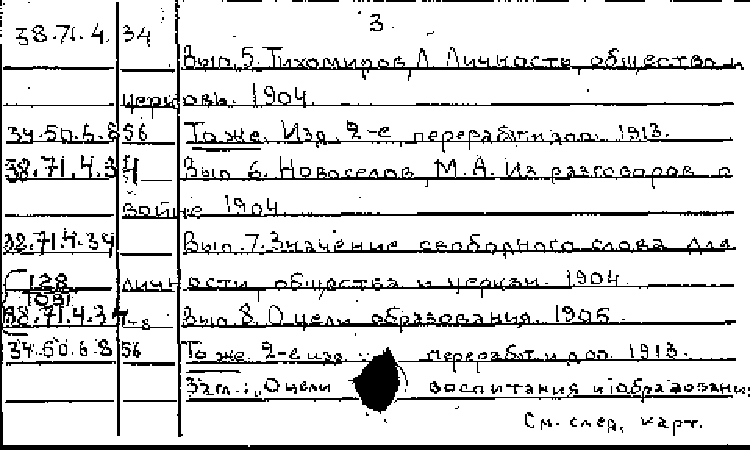 38.71.4.34 3.
Вып. 5. Тихомиров, Л. Личность, общество и
церковь. 1904.
34.50.6.856 То же. Изд. 2-е, переработ. и доп. 1913.
38.71.4.34 Вып. 6. Новоселов, М.А. Из разговоров о
войне 1904.
38.71.4.34 Вып. 7. Значение свободного слова для
128 личности, общества и церкви. 1904
1081
38.71.4.34 Вып. 8. О цели образования. 1905
34.50.6.856 То же. 2-е изд. переработ. и доп. 1913.
Загл.: „О цели воспитания и образования
См. след. карт.